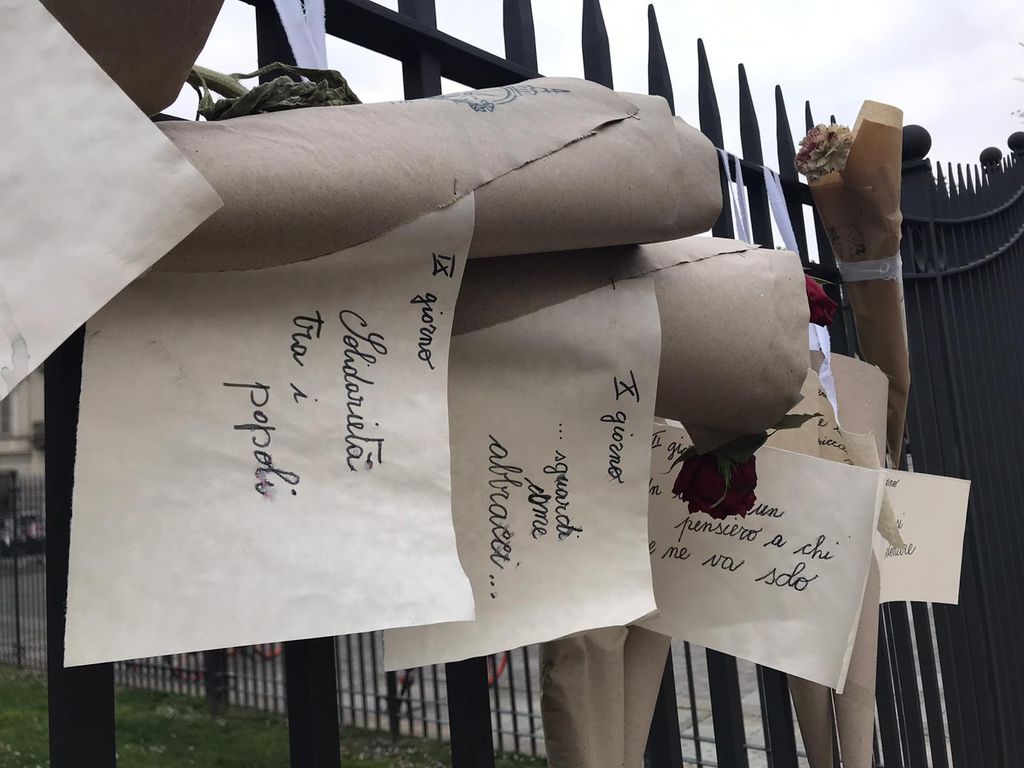 IX giorno
Solidarietà
tra i
popoli
X giorno
... sguardi
come
abbracci...
un
pensiero a chi
e ne va solo